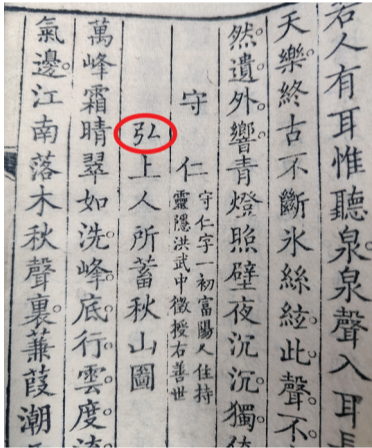 若人有耳惟聽泉泉聲入耳
天樂終古不斷氷絲絃此聲不
然遺外響青燈照壁夜沉沉獨
守仁
守仁字一初富陽人住持
靈隱洪武中徵授右善世
弘上人所蓄秋山圖
萬峰霜晴翠如洗峰底行雲度
氣邊江南落木秋聲裏蒹葭潮